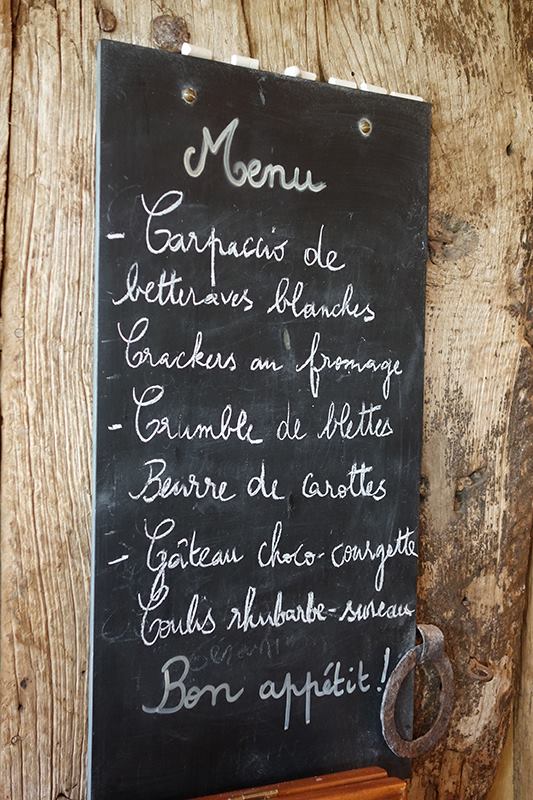 Menu
- Carpaccio de
betteraves blanches
Crackers au fromage
- Crumble de blettes
Beurre de carottes
- Gâteau choco-courgette
Coulis rhubarbe-sureau
Bon appétit !